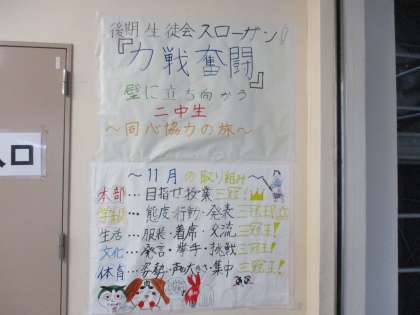 後期生徒会スローガン!
『力戦奮闘』
壁に立ち向かう
二中生
～同心協力の旅～
入口
～11月の取り組み～
本部…目指せ授業三冠王
学習…態度・行動・発表 三冠王
生活…服装・着席・交流 三冠王!
文化…発言・挙手・挑戦 三冠王!
体育…姿勢・声の大きさ・集中 三冠王!